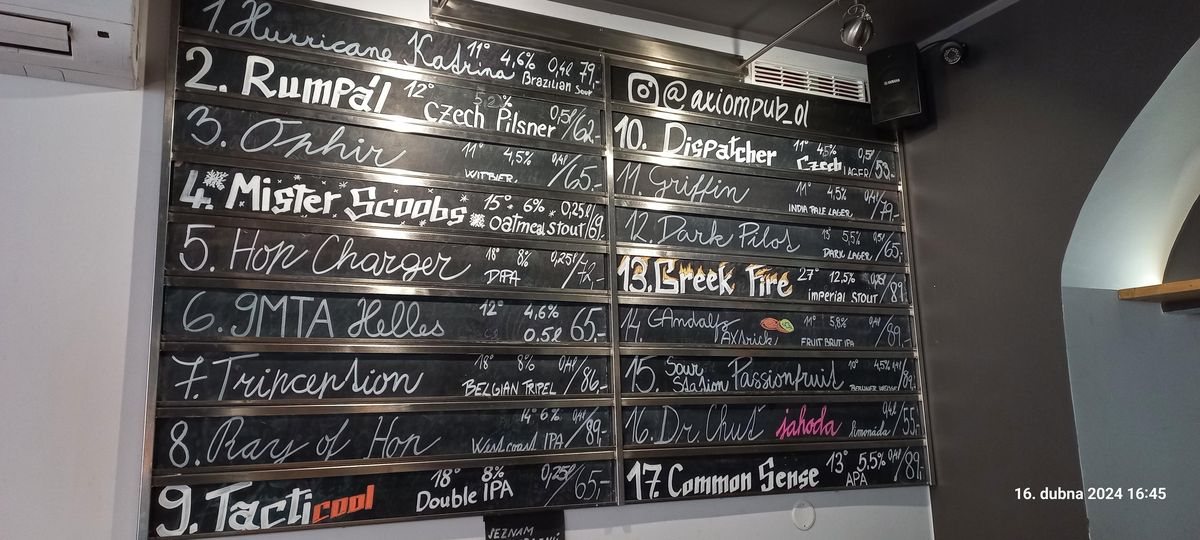 1. Hurricane Katrina 11° 4,6% 0,4l 79,-
Brazilian Sour
2. Rumpál 12° 5,2% 0,5l/62,-
Czech Pilsner
3. Ophir 11° 4,5% 0,4l/65,-
WITBIER
4. Mister Scoobs 15° 6% 0,25l/69,-
Oatmeal Stout
5. Hop Charger 18° 8% 0,25l/72,-
DIPA
6. 9MTA Helles 12° 4,6% 65,-
0.5l
7. Tripception 18° 8% 0,4l/86,-
BELGIAN TRIPEL
8. Ray of Hop 14° 6% 0,4l/89,-
West coast IPA
9. Tacticool 18° 8% 0,25l/65,-
Double IPA
@axiompub_ol
10. Dispatcher 11° 4,5% 0,5l/59,-
Czech LAGER
11. Griffin 11° 4,5% 0,4l/79,-
INDIA PALE LAGER
12. Dark Pilot 13° 5,5% 0,5l/65,-
DARK LAGER
13. Greek Fire 27° 12,5% 0,25l/89,-
Imperial STOUT
14. GAndalf 11° 5,8% 0,4l/89,-
AXtrick FRUIT BRUT IPA
15. Sour Station Passionfruit 10° 4,5% 0,4l/89,-
BERLINER WEISSE
16. Dr. Chuť jahoda 0,4l/55,-
limonáda
17. Common Sense 13° 5.5% 0,4l/89,-
APA
SEZNAM
16. dubna 2024 16:45